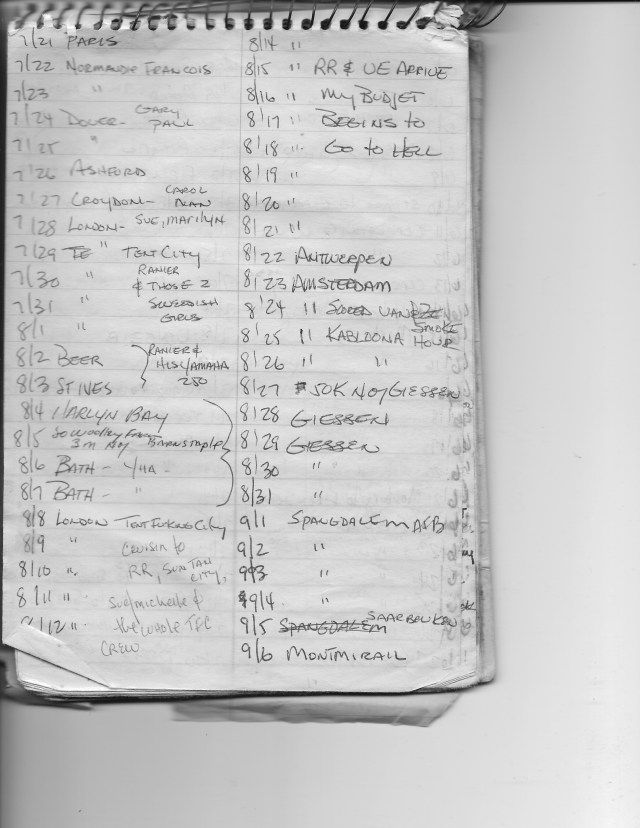 7/21 PARIS
7/22 NORMANDIE FRANCOIS
7/23 "
7/24 DOVER- GARY PAUL
7/25 "
7/26 ASHFORD
7/27 CROYDON- CAROL ALAN
7/28 LONDON- SUE, MARILYN
7/29 " TENT CITY
7/30 " RANIER
7/31 " & THOSE 2 SWEEDISH
8/1 " GIRLS
8/2 BEER RANIER &
8/3 ST IVES HIS YAMAHA 250
8/4 HARLYN BAY
8/5 3 M BARNSTAPLE
8/6 BATH - YHA -
8/7 BATH - "
8/8 LONDON TENT FUKING CITY
8/9 " CRUISIN to
8/10 " RR, SUN TAN CITY,
8/11 " sue/michelle &
8/12 " the whole TFC
CREW
8/14 "
8/15 " RR & UE ARRIVE
8/16 " MY BUDJET
8/17 " BEGINS to
8/18 " GO to HELL
8/19 "
8/20 "
8/21 "
8/22 ANTWERPEN
8/23 AMSTERDAM
8/24 " SCORED VAN
8/25 " KABLOONA SMOKE HOUR
8/26 " "
8/27 50K N OF GIESSEN
8/28 GIESSEN
8/29 GIESSEN
8/30 "
8/31 "
9/1 SPANGDALEM AFB
9/2 "
9/3 "
9/4 "
9/5 SPANGDALEM SAARBRUKEN
9/6 MONTMIRAIL